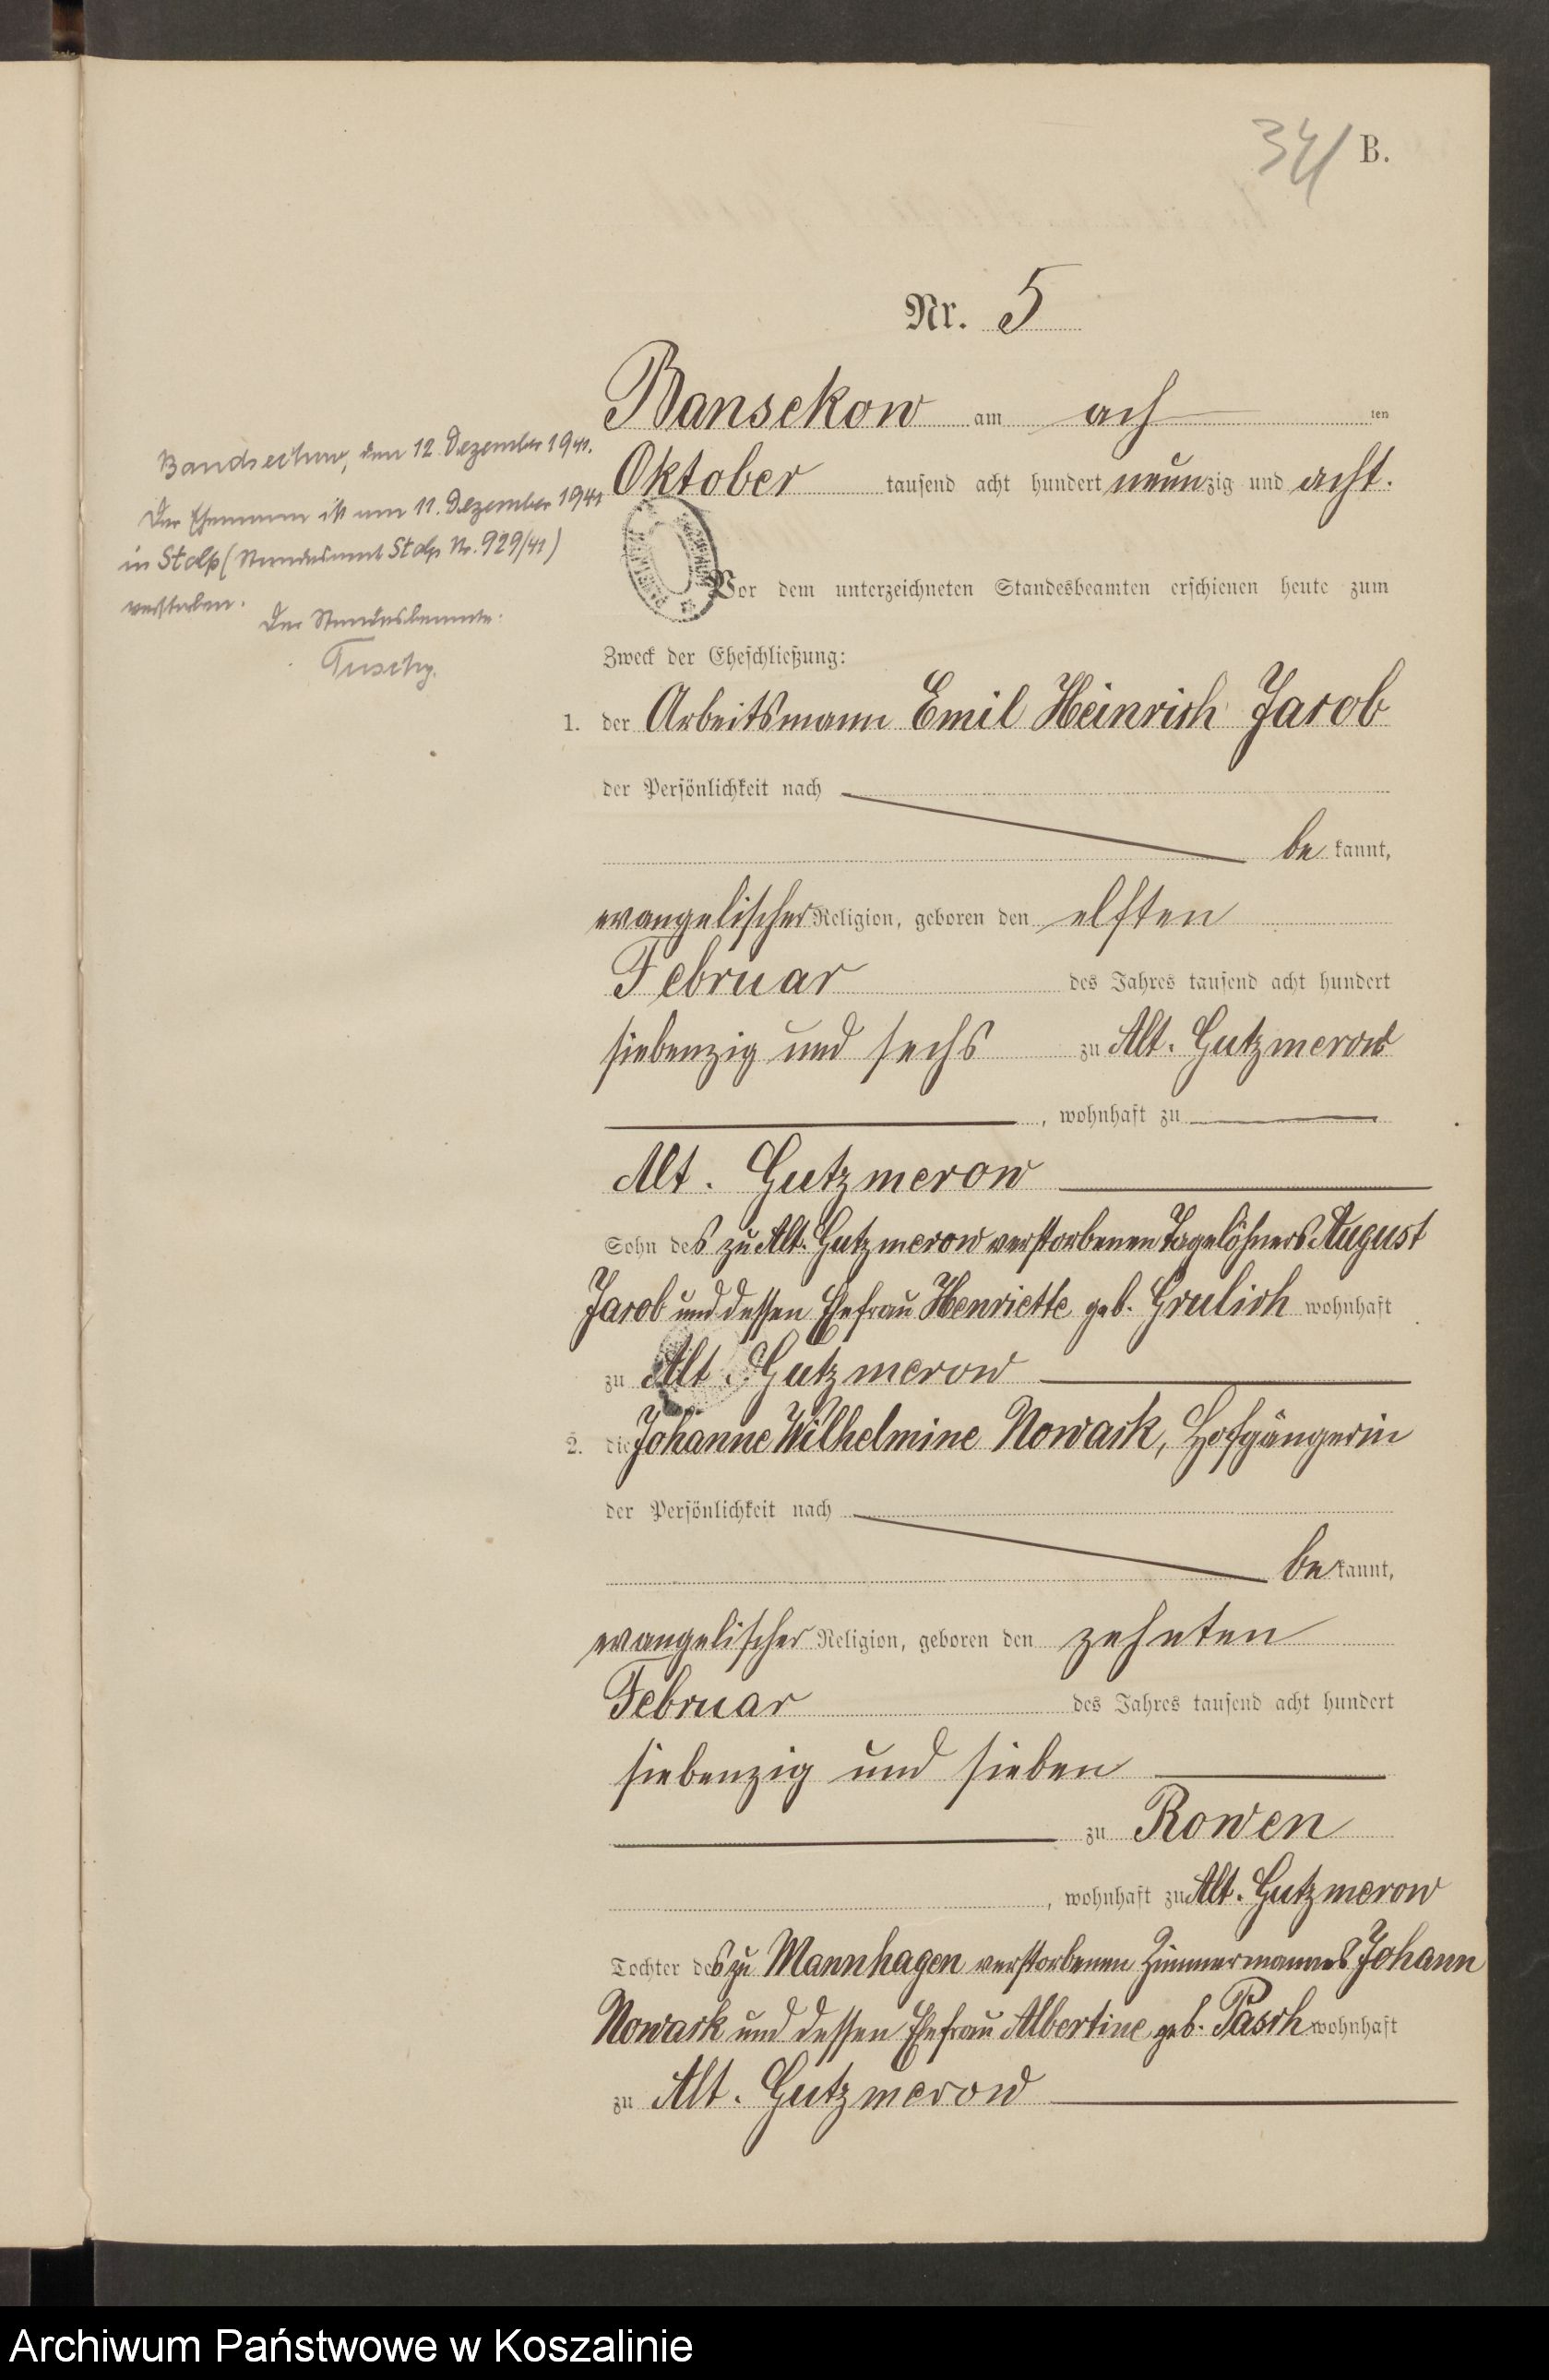 34 B.
Nr. 5
Bansekow am ach ten
Oktober tausend acht hundert neunzig und acht.
Vor dem unterzeichneten Standesbeamten erschienen heute zum
Zweck der Eheschließung:
1. der Arbeitsmann Emil Heinrich Jacob
der Persönlichkeit nach
be kannt,
evangelischer Religion, geboren den elften
Februar des Jahres tausend acht hundert
siebenzig und sechs zu Alt. Gutzmerow
, wohnhaft zu
Alt. Gutzmerow
Sohn des zu Alt. Gutzmerow verstorbenen Tagelöhners August
Jacob und dessen Ehefrau Henriette geb. Grulich wohnhaft
zu Alt. Gutzmerow
2. die Johanne Wilhelmine Nowack, Hofgängerin
der Persönlichkeit nach
be kannt,
evangelischer Religion, geboren den zehnten
Februar des Jahres tausend acht hundert
siebenzig und sieben
zu Rowen
, wohnhaft zu Alt. Gutzmerow
Tochter des zu Mannhagen verstorbenen Zimmermannes Johann
Nowack und dessen Ehefrau Albertine geb. Pasch wohnhaft
zu Alt. Gutzmerow
Bandsechow, den 12. Dezember 1941.
Der Ehemann ist am 11. Dezember 1941
in Stolp (Standesamt Stolp Nr. 929/41)
verstorben.
Der Standesbeamte:
Archiwum Państwowe w Koszalinie